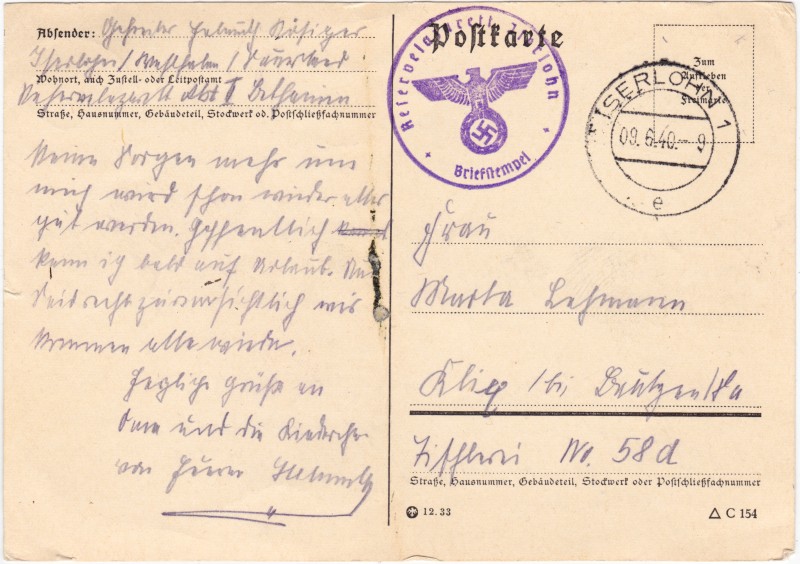 Absender: Gefreiter Helmuth Rösiger
Iserlohn/Westfalen/Sauerland
Wohnort, auch Zustell- oder Leitpostamt
Reservelazarett Abt II Bethanien
Straße, Hausnummer, Gebäudeteil, Stockwerk od. Postschließfachnummer
keine Sorgen mehr um
mich wird schon wieder alles
gut werden. Hoffentlich
kann ich bald auf Urlaub.
Seid recht zuversichtlich wir
kommen alle wieder.
Herzliche Grüße an
Oma und die Kinderchen
von Eurem Helmuth
Postkarte
Reservelazarett Iserlohn
Briefstempel
Zum
Aufkleben
der
Freimarke
ISERLOHN 1
09.6.40.-9
e
Frau
Marta Lehmann
Klix / bei Bautzen/Sa
Tischlerei No. 58d
Straße, Hausnummer, Gebäudeteil, Stockwerk oder Postschließfachnummer
12.33
C 154